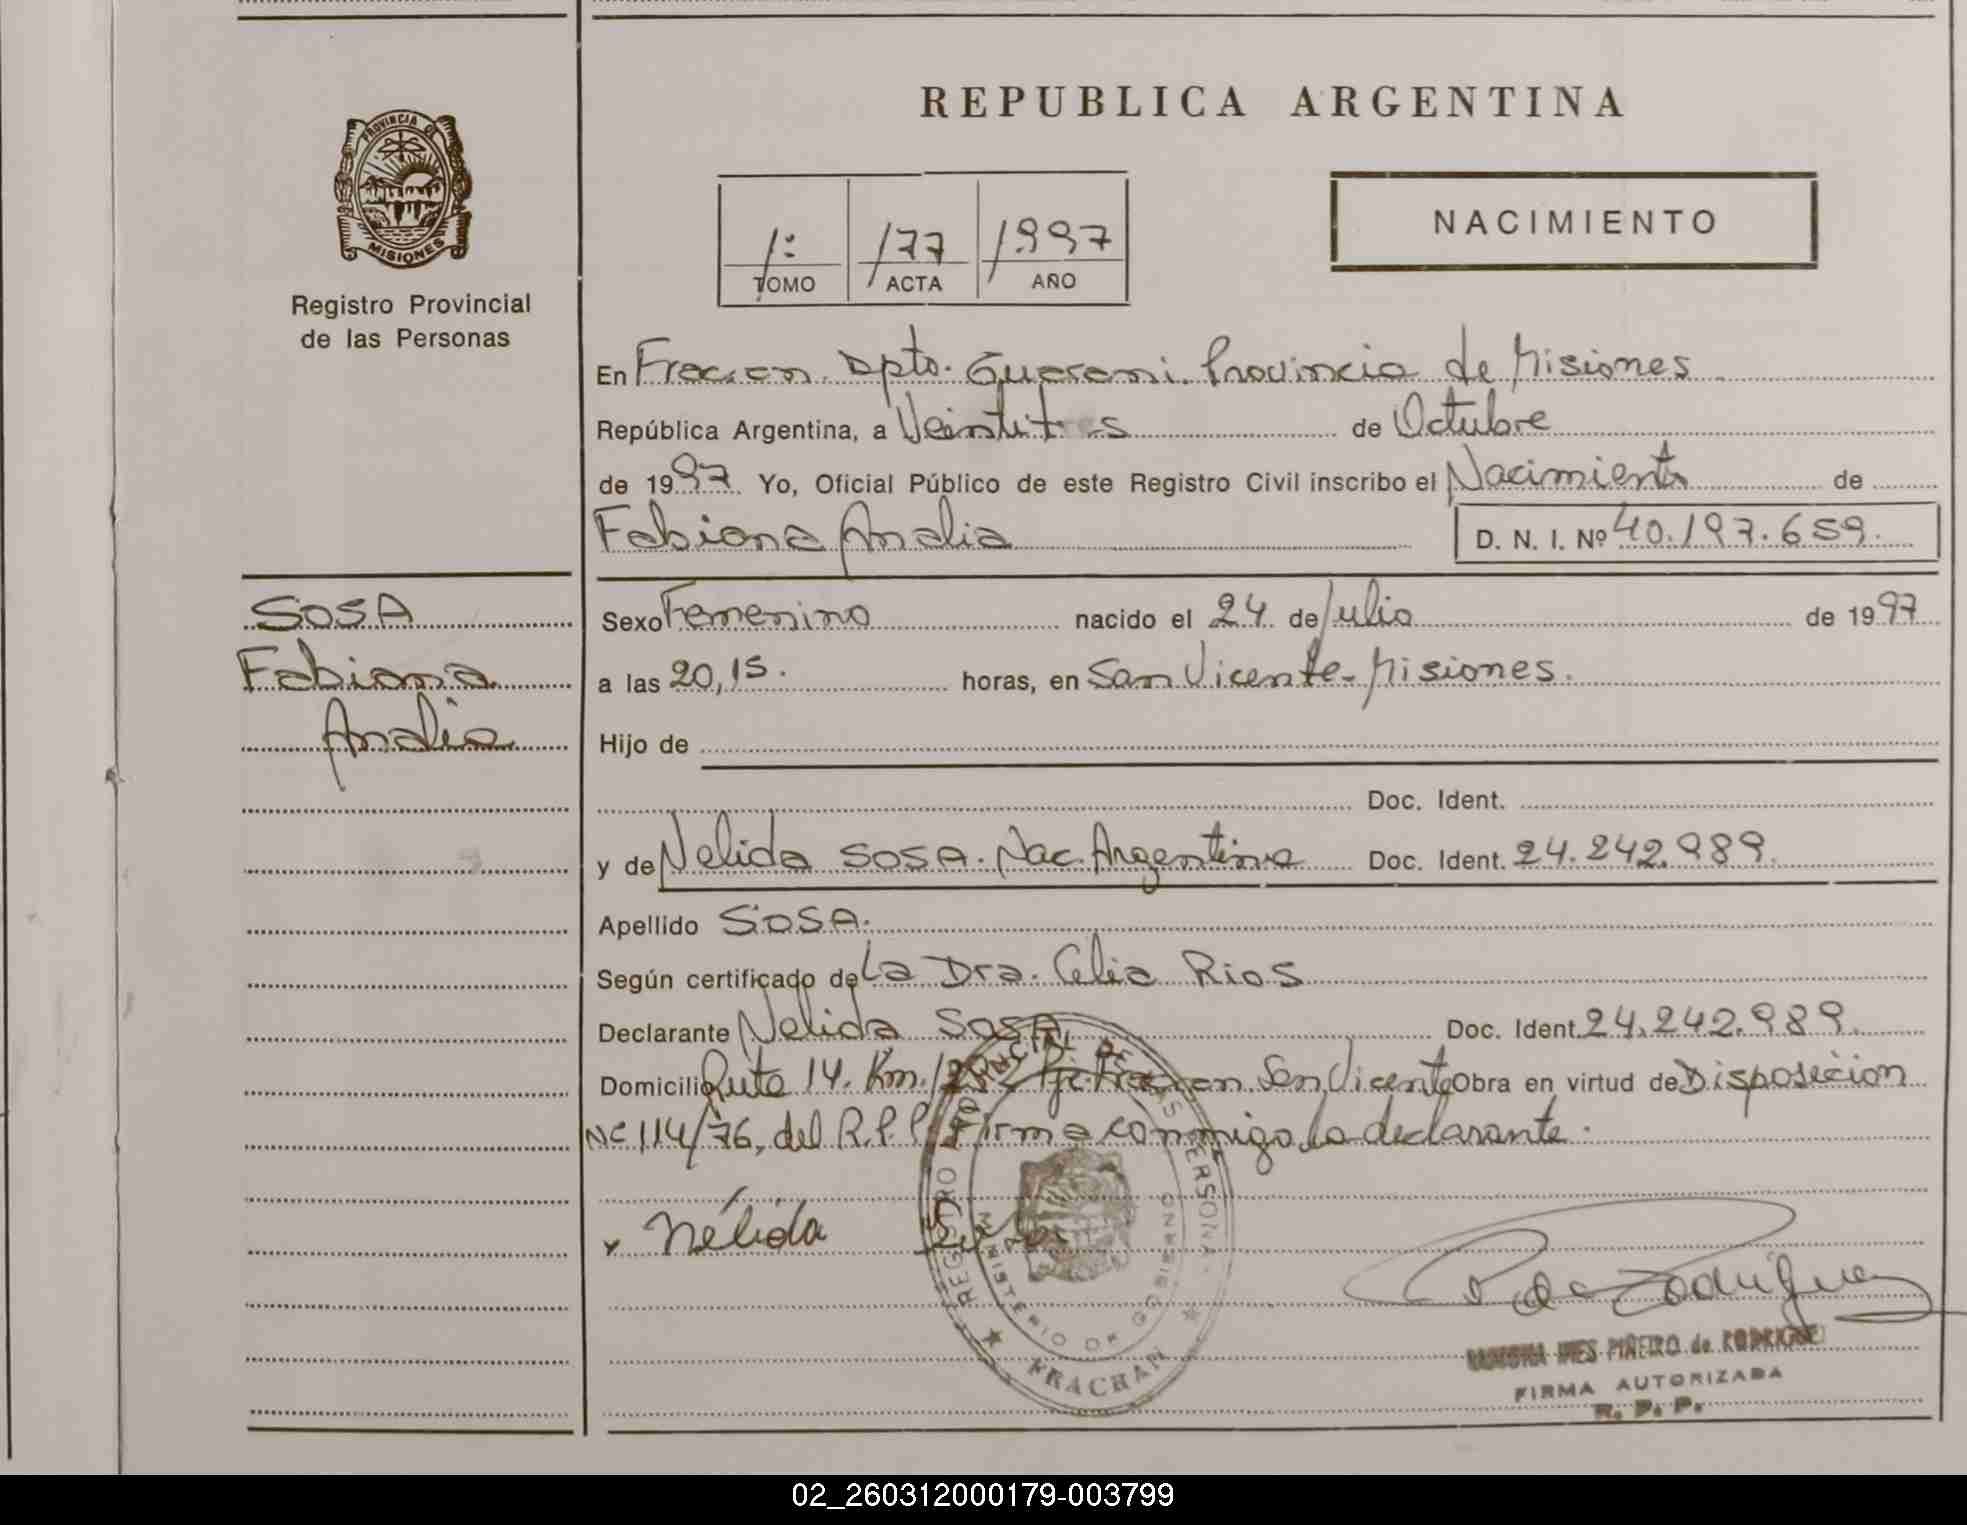 REPUBLICA ARGENTINA
PROVINCIA DE
MISIONES
Registro Provincial
de las Personas
1º 177 1997
TOMO ACTA AÑO
NACIMIENTO
En Fracran. Dpto. Guarani. Provincia de Misiones
República Argentina, a Veintitres de Octubre
de 1997. Yo, Oficial Público de este Registro Civil inscribo el Nacimiento de
Fabiana Analia D. N. I. Nº 40.197.659.
SOSA
Fabiana
Analia
Sexo Femenino nacido el 24 de Julio de 1997
a las 20,15. horas, en San Vicente-Misiones.
Hijo de
Doc. Ident.
y de Nelida SOSA. Nac. Argentina Doc. Ident. 24.242.989.
Apellido SOSA.
Según certificado de La Dra. Celia Rios
Declarante Nelida SOSA Doc. Ident. 24.242.989.
Domicilio Ruta 14. Km. Fracran San Vicente Obra en virtud de Disposicion
Nº 114/76, del R.P.P. Firma conmigo la declarante.
Nélida
REGISTRO PROVINCIAL DE LAS PERSONAS
MINISTERIO DE GOBIERNO
FRACRAN
INES PIÑEIRO de RODRIGUEZ
FIRMA AUTORIZADA
R. P. P.
02_260312000179-003799